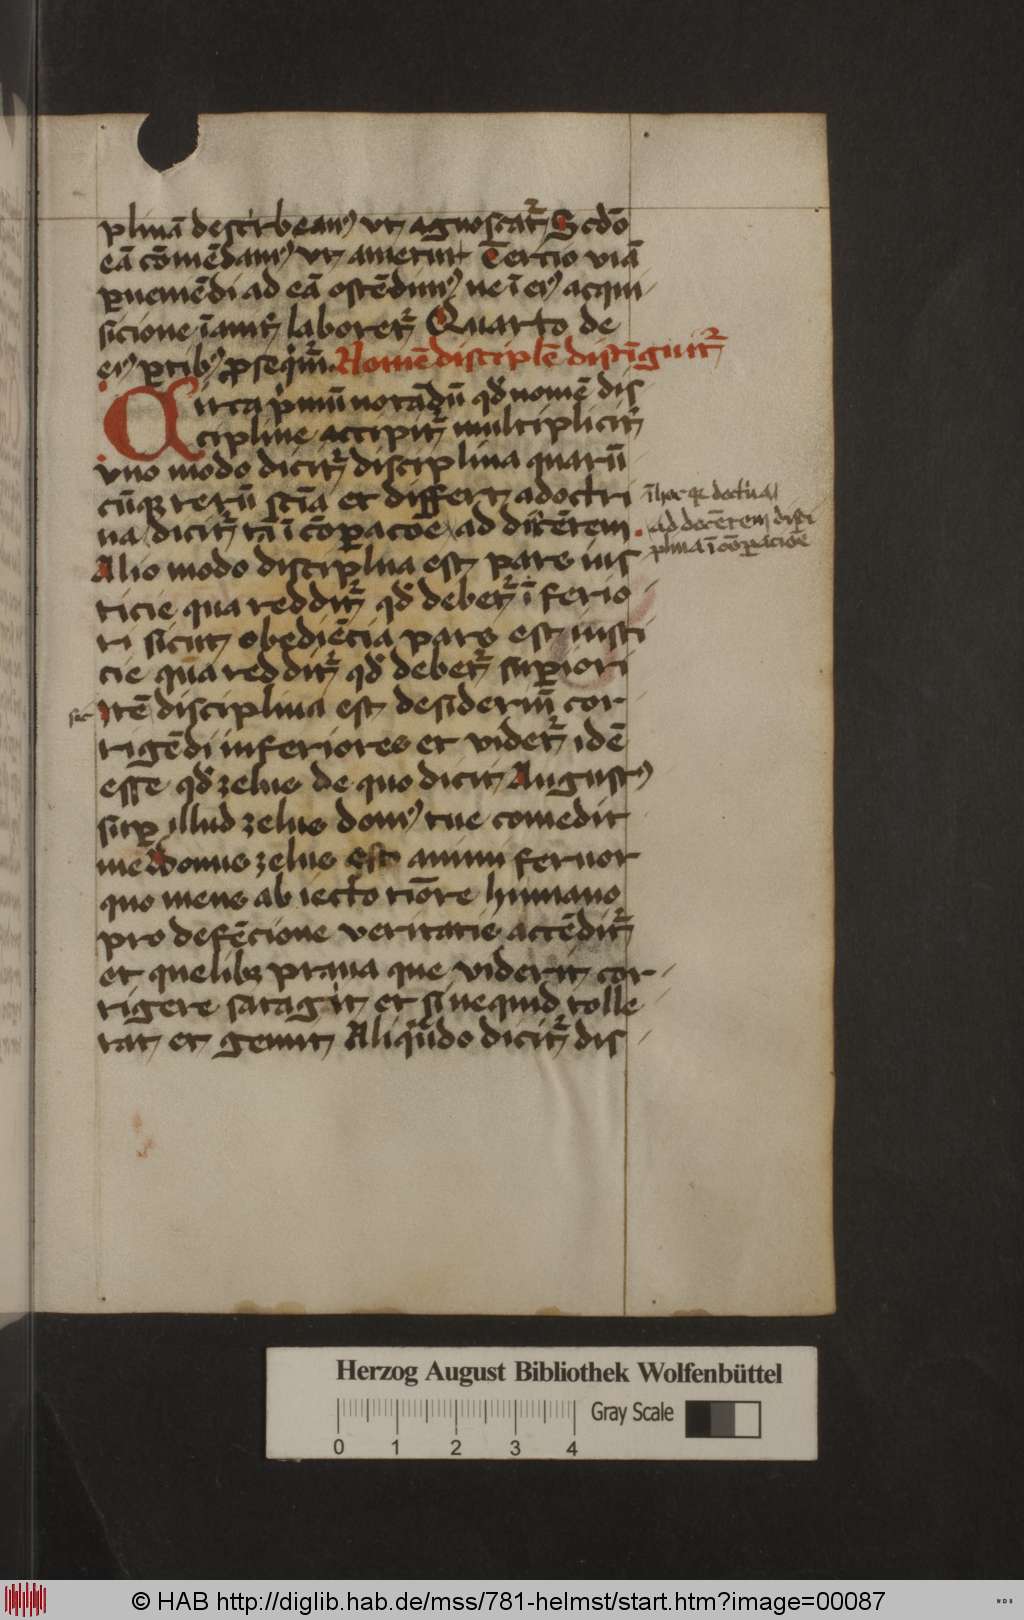 plinā describeamꝰ vt agnoscatᷣ Scdō
eā cōmēdamꝰ vt ametur Tercio viā
ꝑueniēdi ad eā ostēdimꝰ ne ī eiꝰ acqui
sicione īanitᷣ laboretᷣ Quarto de
eiꝰ ꝑtibꝰ ꝓseqᷣmᷣ. Nomē disciplē distīguitᷣ
Circa pͥmū notādū qd̓ nomē dis
cipline accipitᷣ multiplicitᷣ
vno modo dicitᷣ disciplina quarū
cūqꝫ rerū scīa et differt a doctri
na dicitᷣ tn̄ ī cōꝑacōe ad discētem
īhoc qꝛ doctͥna
ad docētem disci
plina ī cōꝑacioē
Alio modo disciplina est pars ius
ticie qua redditᷣ qd̓ debetᷣ īferio
ri sicut obediēcia pars est iusti
cie qua redditᷣ qd̓ debetᷣ suꝑiori
Itē disciplina est desideriū cor
rigēdi inferiores et videtᷣ idē
esse qd̓ zelus de quo dicit Augustꝰ
suꝑ illud zelus domꝰ tue comedit
me Bonus zelus est animi feruor
quo mens abiecto timōre humano
pro defēcione veritatis accēditᷣ
et quelibꝫ praua que viderit cor
rigere satagit et si nequid tolle
rat et gemit Aliqn̄do dicitᷣ dis
Herzog August Bibliothek Wolfenbüttel
Gray Scale
0 1 2 3 4
© HAB http://diglib.hab.de/mss/781-helmst/start.htm?image=00087